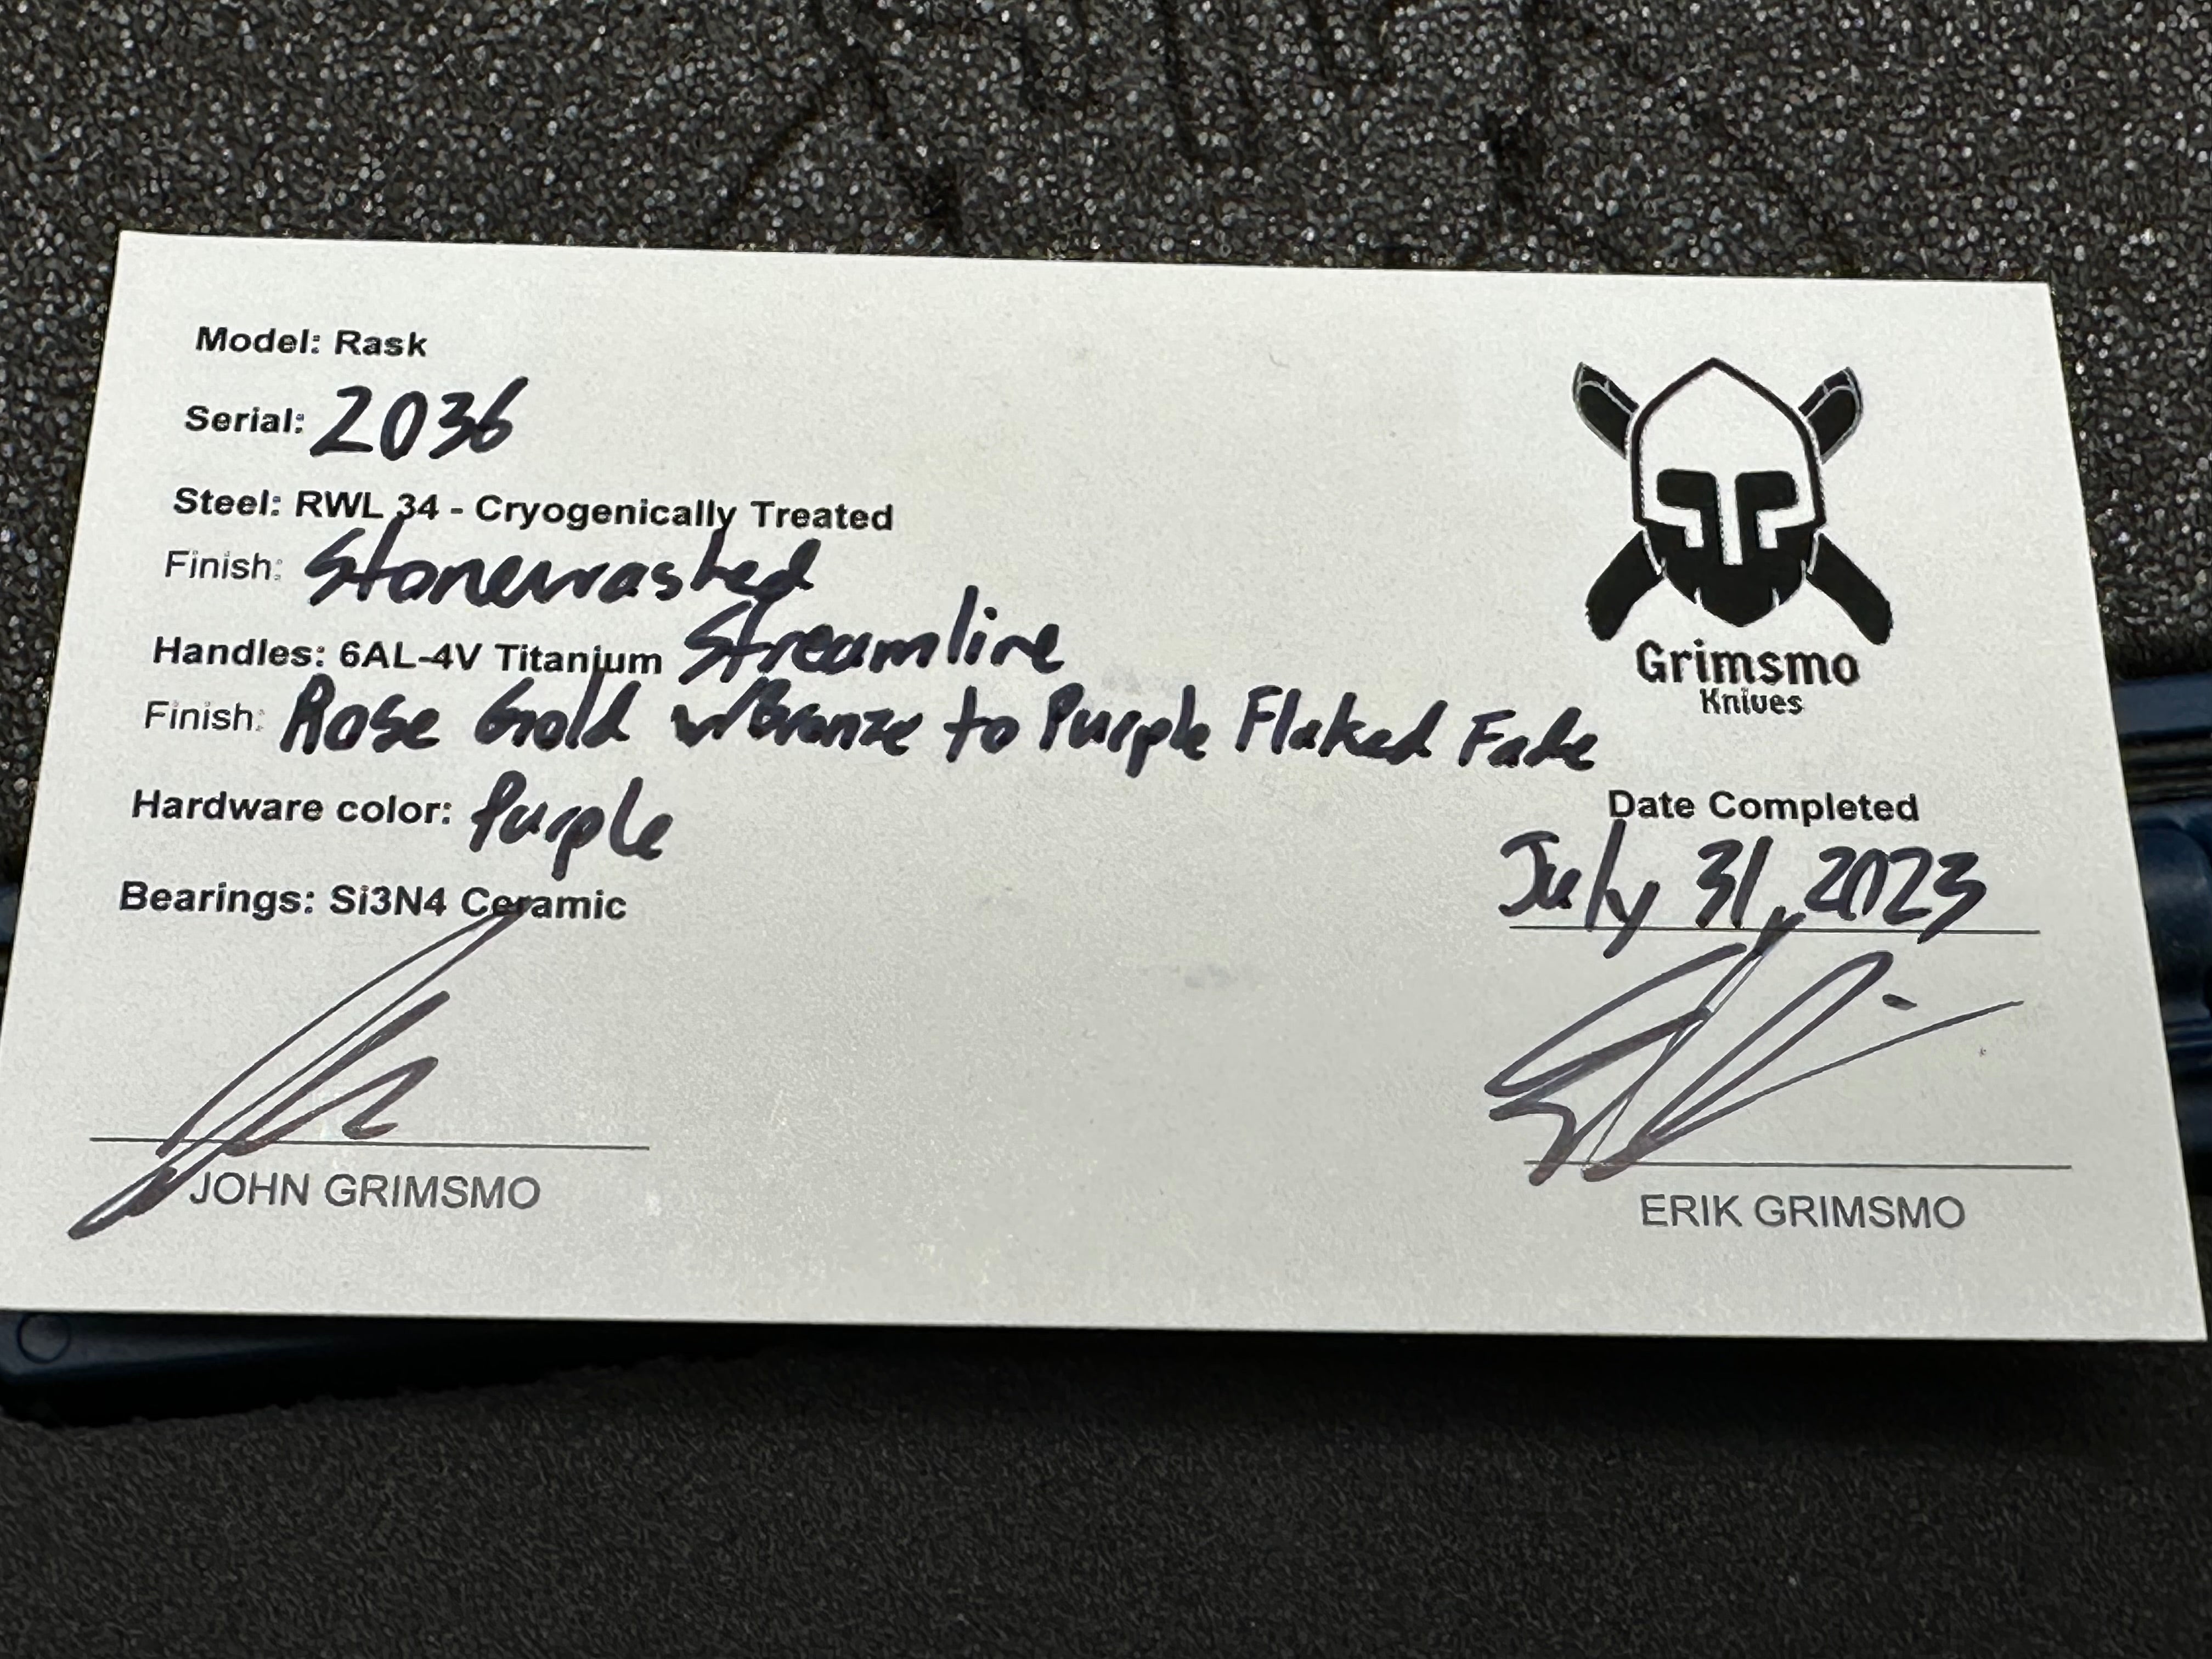 Model: Rask
Serial: 2036
Steel: RWL 34 - Cryogenically Treated
Finish: Stonewashed
Handles: 6AL-4V Titanium Streamline
Finish: Rose Gold w/Bronze to Purple Flaked Fade
Hardware color: Purple
Bearings: Si3N4 Ceramic
JOHN GRIMSMO
Grimsmo
Knives
Date Completed
July 31, 2023
ERIK GRIMSMO